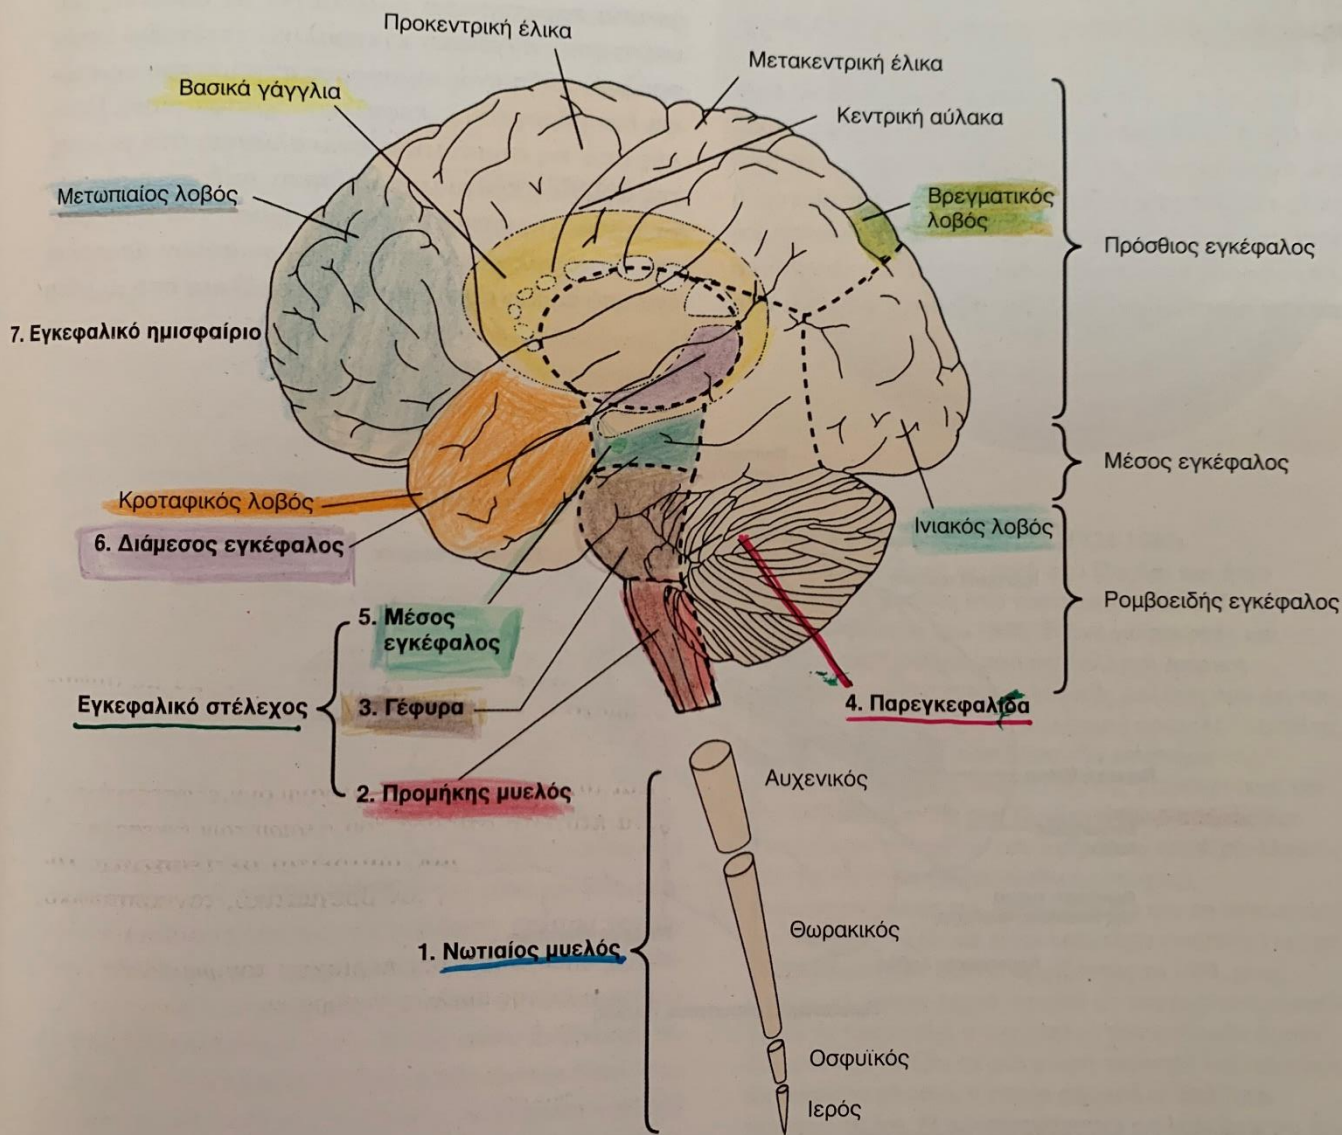 Προκεντρική έλικα
Μετακεντρική έλικα
Βασικά γάγγλια
Κεντρική αύλακα
Μετωπιαίος λοβός
Βρεγματικός
λοβός
Πρόσθιος εγκέφαλος
7. Εγκεφαλικό ημισφαίριο
Μέσος εγκέφαλος
Κροταφικός λοβός
Ινιακός λοβός
6. Διάμεσος εγκέφαλος
Ρομβοειδής εγκέφαλος
5. Μέσος
εγκέφαλος
Εγκεφαλικό στέλεχος
3. Γέφυρα
4. Παρεγκεφαλίδα
2. Προμήκης μυελός
Αυχενικός
1. Νωτιαίος μυελός
Θωρακικός
Οσφυϊκός
Ιερός